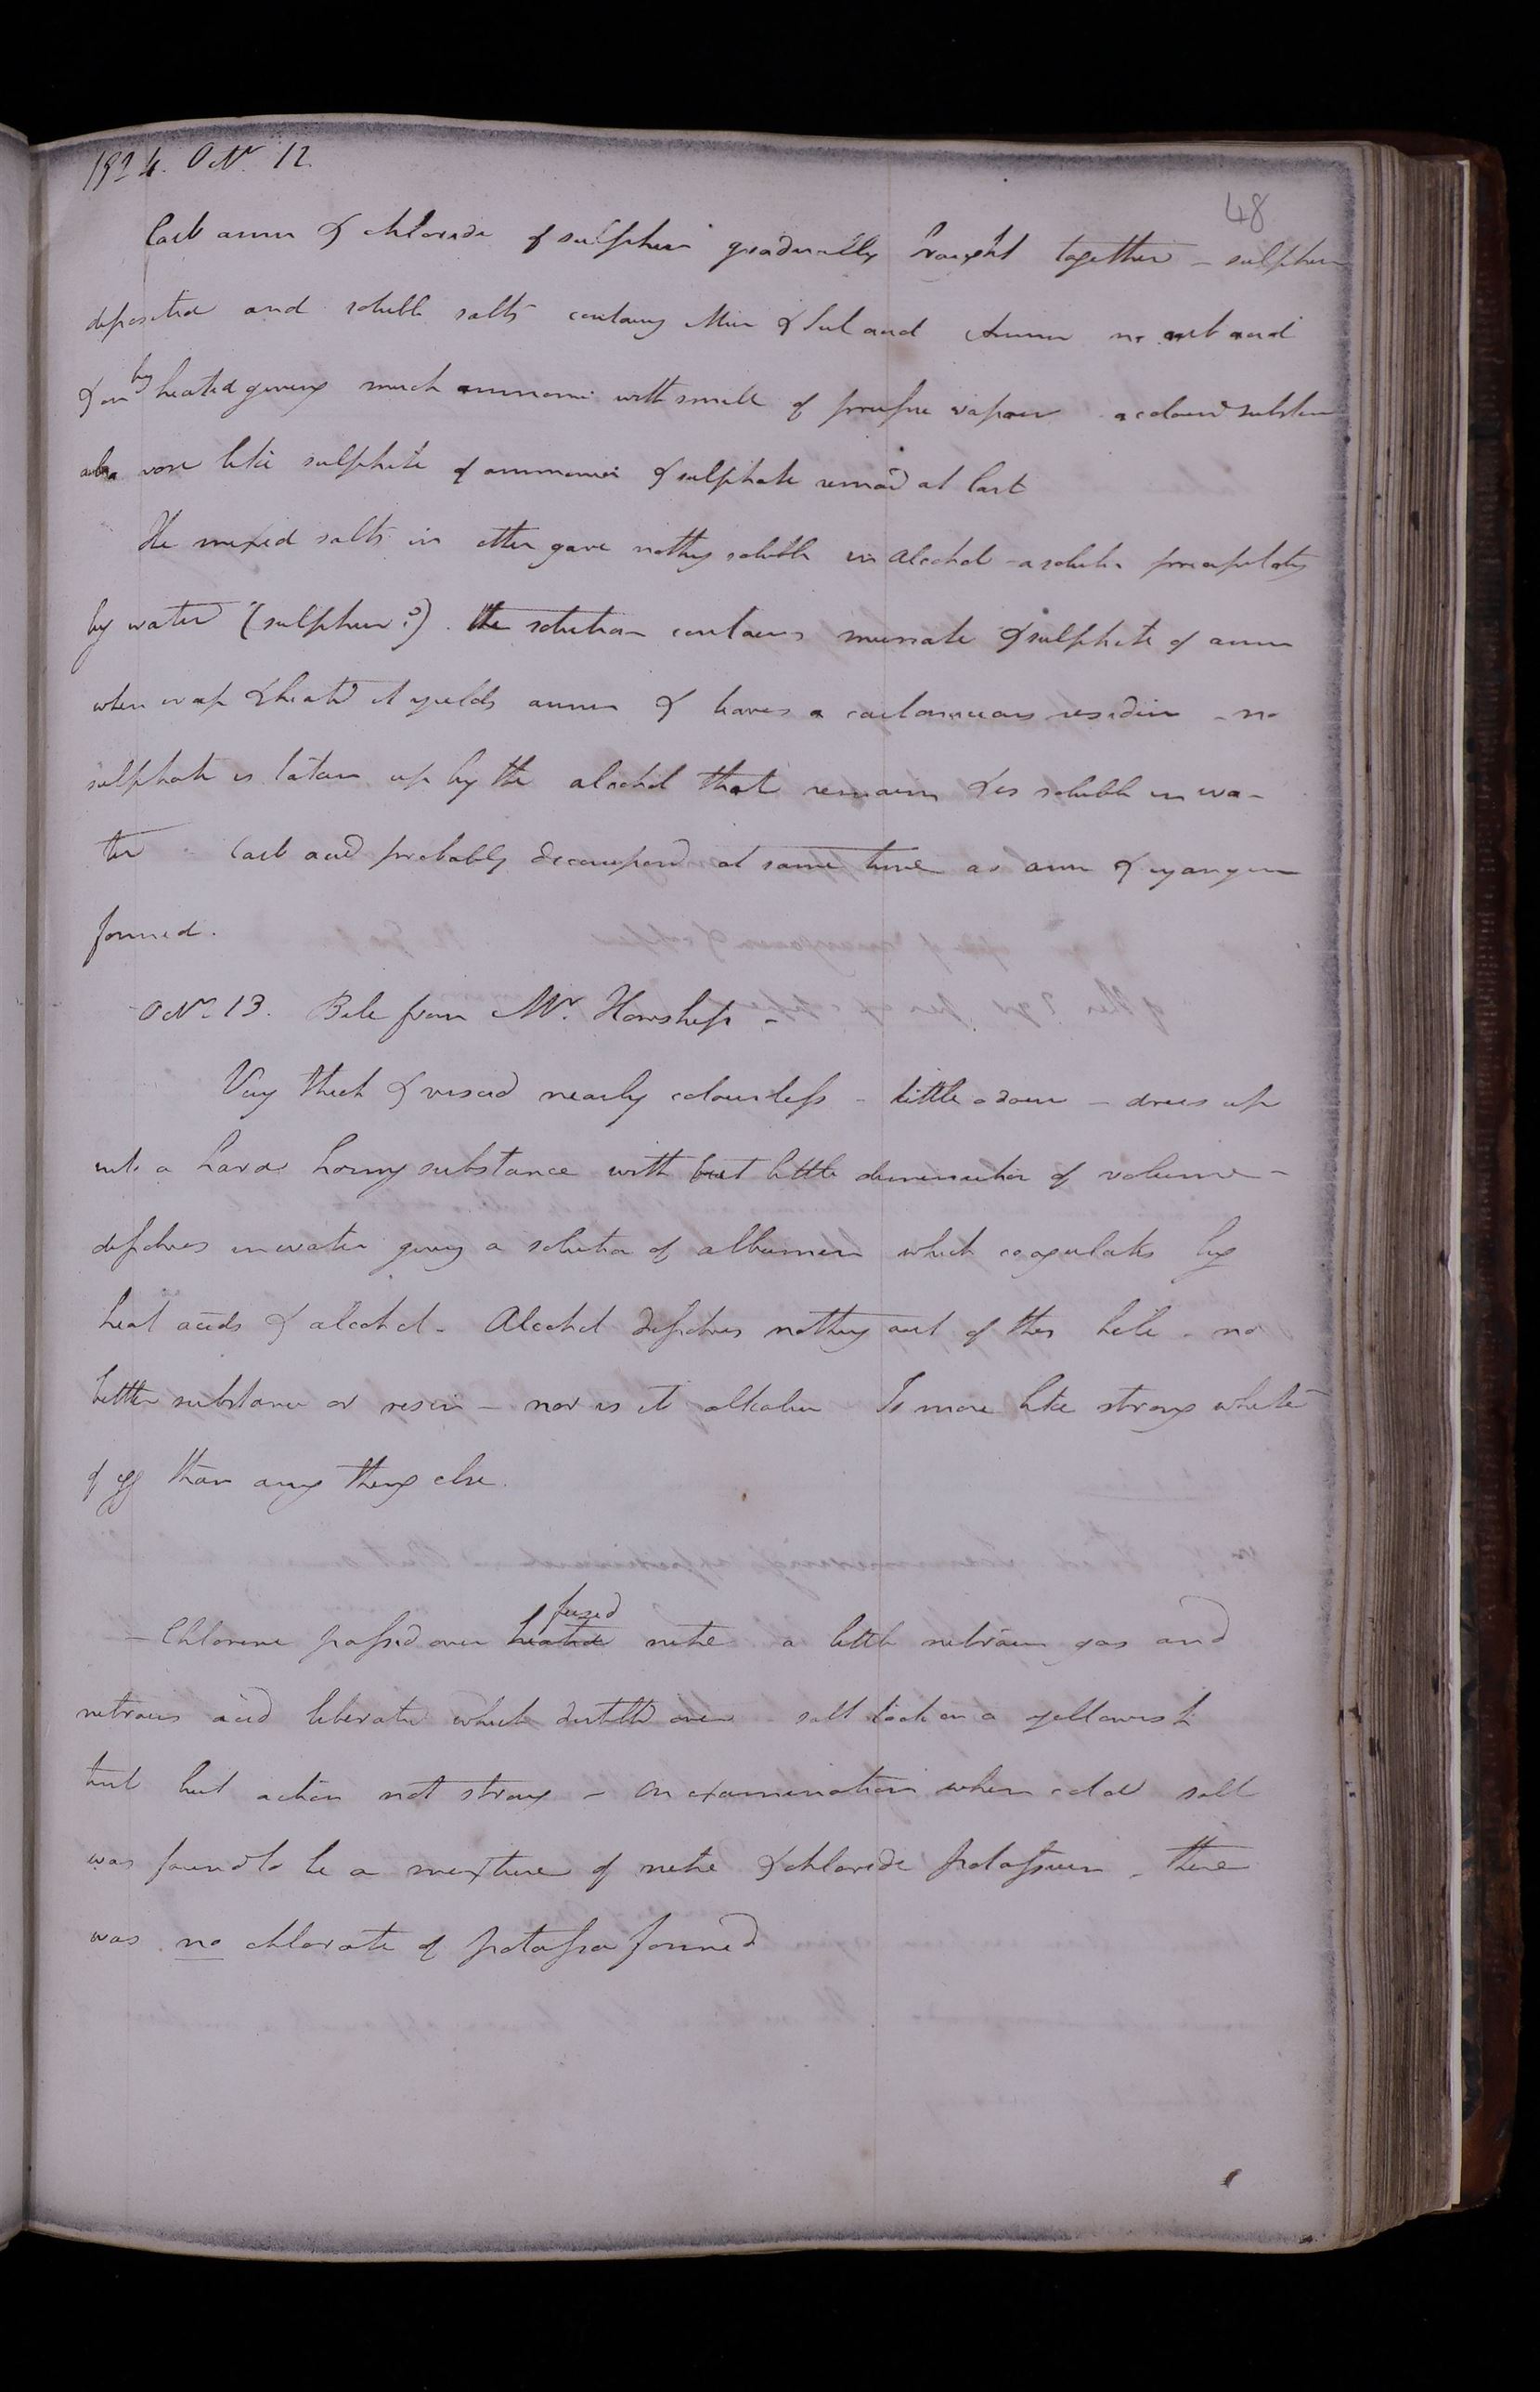 1824. Octr. 12.
48
Carb amm & chloride of sulphur gradually brought together - sulphur
deposited and soluble salts containg Mur & Sul and Amm no carb acid
& on heated giving much ammonia with smell of prussic vapour a colourd substan
also rose like sulphite of ammonia & sulphate remaind at last
The mixed salts in ether gave nothing soluble in alcohol - a solution precipitatg
by water (sulphur?). the solution contains muriate & sulphite of amm
when evap & heatd it yields amm & leaves a carbonaceous residue - no
sulphate is taken up by the alcohol that remains & is soluble in wa-
ter - Carb acid probably decomposed at same time as amm & cyanogen
formed.
Octr. 13. Bile from Mr. Howship -
Very thick & viscid nearly colourless - little odour - dries up
into a hard horny substance with but little diminution of volume -
dissolves in water giving a solution of albumen which coagulates by
heat acids & alcohol - Alcohol dissolves nothing out of this bile - no
bitter substance or resin - nor is it alkaline Is more like strong white
of egg than any thing else.
fused
- Chlorine passed over heated nitre a little nitrous gas and
nitrous acid liberated which distilld over - salt took on a yellowish
tint but action not strong - On examination when cold salt
was found to be a mixture of nitre & chloride potassium - there
was no chlorate of potassa formed